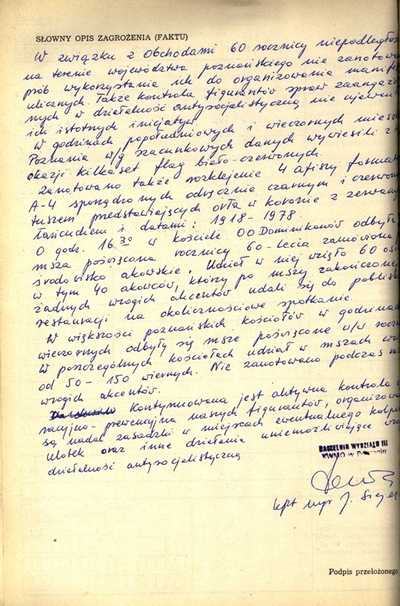 SŁOWNY OPIS ZAGROŻENIA (FAKTU)
W związku z Obchodami 60 rocznicy niepodległoś
na terenie województwa poznańskiego nie zanotowa
prób wykorzystania ich do organizowania manife
ulicznych. Także kontrola figurantów spraw zaangażo
nych w działalność antysocjalistyczną nie ujawni
ich istotnych inicjatyw.
W godzinach popołudniowych i wieczornych miesz
Poznania w/g szacunkowych danych wywiesili z
okazji kilkaset flag biało-czerwonych.
Zanotowano także rozklejenie 4 afiszy format
A-4 sporządzonych odręcznie czarnym i czerwon
tuszem przedstawiających orła w koronie z zerwany
łańcuchem i datami: 1918-1978.
O godz. 16.30 w kościele OO Dominikanów odbyła
msza poświęcona rocznicy 60-lecia zamówiona
środowisko akowskie. Udział w niej wzięło 60 osó
w tym 40 akowców, którzy po mszy zakończone
żadnych wrogich akcentów udali się do pobliski
restauracji na okolicznościowe spotkanie.
W większości poznańskich kościołów w godzinach
wieczornych odbyły się msze poświęcone w/w roczn
W poszczególnych kościołach udział w mszach wz
od 50-150 wiernych. Nie zanotowano podczas m
wrogich akcentów.
Kontynuowana jest aktywna kontrola o
racyjno-prewencyjna naszych figurantów, organizowa
są nadal zasadzki w miejscach ewentualnego kolpo
ulotek oraz inne działania uniemożliwiające wro
działalność antysocjalistyczną
NACZELNIK WYDZIAŁU III
KWMO w Poznaniu
kpt mgr J.
Podpis przełożonego